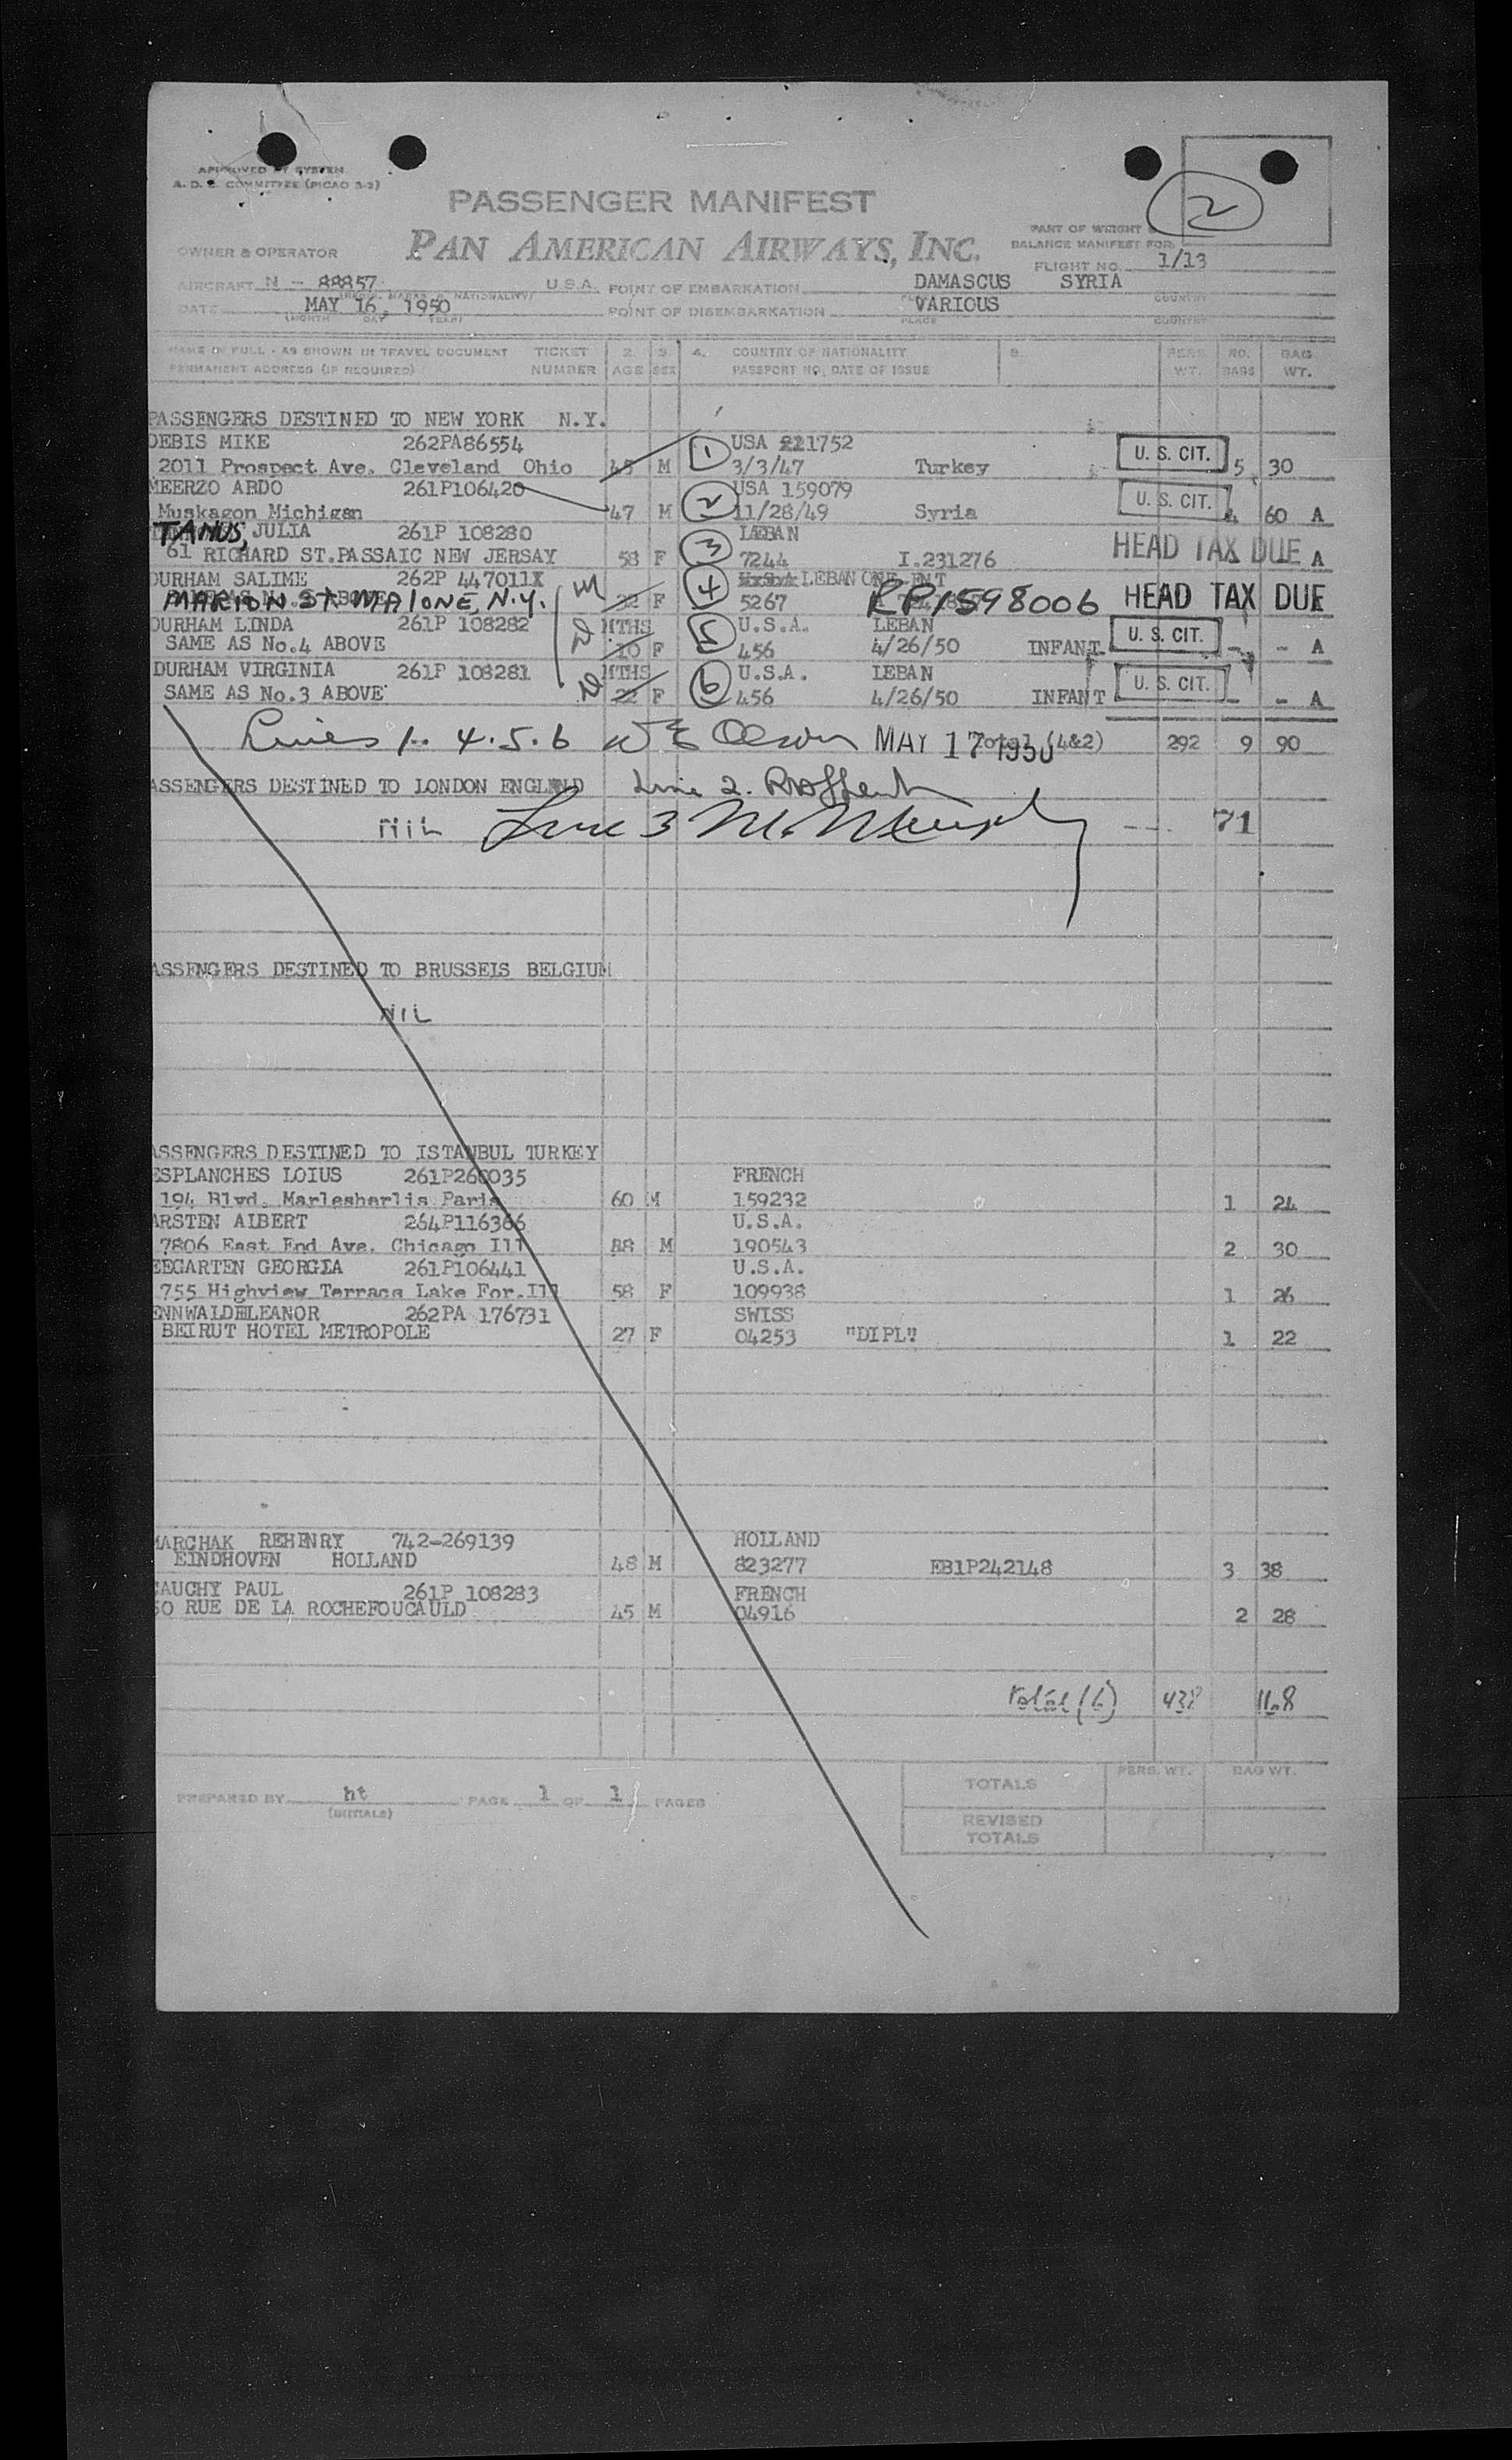 APPROVED BY SYSTEM
A. D. C. COMMITTEE (PICAO 3-2)
2
PASSENGER MANIFEST
PART OF WEIGHT &
OWNER & OPERATOR PAN AMERICAN AIRWAYS, INC. BALANCE MANIFEST FOR:
FLIGHT NO. 1/13
AIRCRAFT N - 88857 U.S.A. POINT OF EMBARKATION DAMASCUS SYRIA
DATE MAY 16, 1950 POINT OF DISEMBARKATION VARIOUS
(MONTH DAY YEAR) PLACE COUNTRY
NAME IN FULL - AS SHOWN IN TRAVEL DOCUMENT TICKET 2. 3. 4. COUNTRY OF NATIONALITY 5. PERS. NO. BAG
PERMANENT ADDRESS (IF REQUIRED) NUMBER AGE SEX PASSPORT NO, DATE OF ISSUE WT. BAGS WT.
PASSENGERS DESTINED TO NEW YORK N.Y.
DEBIS MIKE 262PA86554 1 USA 221752 U. S. CIT.
2011 Prospect Ave. Cleveland Ohio 45 M 3/3/47 Turkey 5 30
MEERZO ABDO 261P106420 2 USA 159079 U. S. CIT.
Muskagon Michigan 47 M 11/28/49 Syria 4 60 A
TANUS, JULIA 261P 108280 3 LEBAN HEAD TAX DUE
61 RICHARD ST.PASSAIC NEW JERSAY 58 F 7244 I.231276 A
DURHAM SALIME 262P 447011X 4 LEBAN
MARION ST. MALONE, N.Y. M 22 F 5267 RP1598006 HEAD TAX DUE
DURHAM LINDA 261P 108282 MTHS 5 U.S.A. LEBAN U. S. CIT.
SAME AS No.4 ABOVE 10 F 456 4/26/50 INFANT - - A
DURHAM VIRGINIA 261P 108281 MTHS 6 U.S.A. LEBAN U. S. CIT.
SAME AS No.3 ABOVE 22 F 456 4/26/50 INFANT - - A
Lines 1. 4. 5. 6 W E Olson MAY 17 1950 Total (4&2) 292 9 90
PASSENGERS DESTINED TO LONDON ENGLAND Line 2.
NIL Line 3 71
ASSENGERS DESTINED TO BRUSSELS BELGIUM
NIL
ASSENGERS DESTINED TO ISTANBUL TURKEY
ESPLANCHES LOIUS FRENCH
194 Blvd. Marlesherlis Paris 60 M 159232 1 24
ARSTEN ALBERT 264P116366 U.S.A.
7806 East End Ave. Chicago Ill 88 M 190543 2 30
EEGARTEN GEORGIA 261P106441 U.S.A.
755 Highview Terracs Lake For.Ill 58 F 109938 1 26
ENNWALDELEANOR 262PA 176731 SWISS
BEIRUT HOTEL METROPOLE 27 F 04253 "DIPL" 1 22
MARCHAK REHENRY 742-269139 HOLLAND
EINDHOVEN HOLLAND 48 M 823277 EB1P242148 3 38
CAUCHY PAUL 261P 108283 FRENCH
50 RUE DE LA ROCHEFOUCAULD 45 M 04916 2 28
total (6) 438 168
PREPARED BY ht PAGE 1 OF 1 PAGES
(INITIALS)
PERS. WT. BAG WT.
TOTALS
REVISED
TOTALS